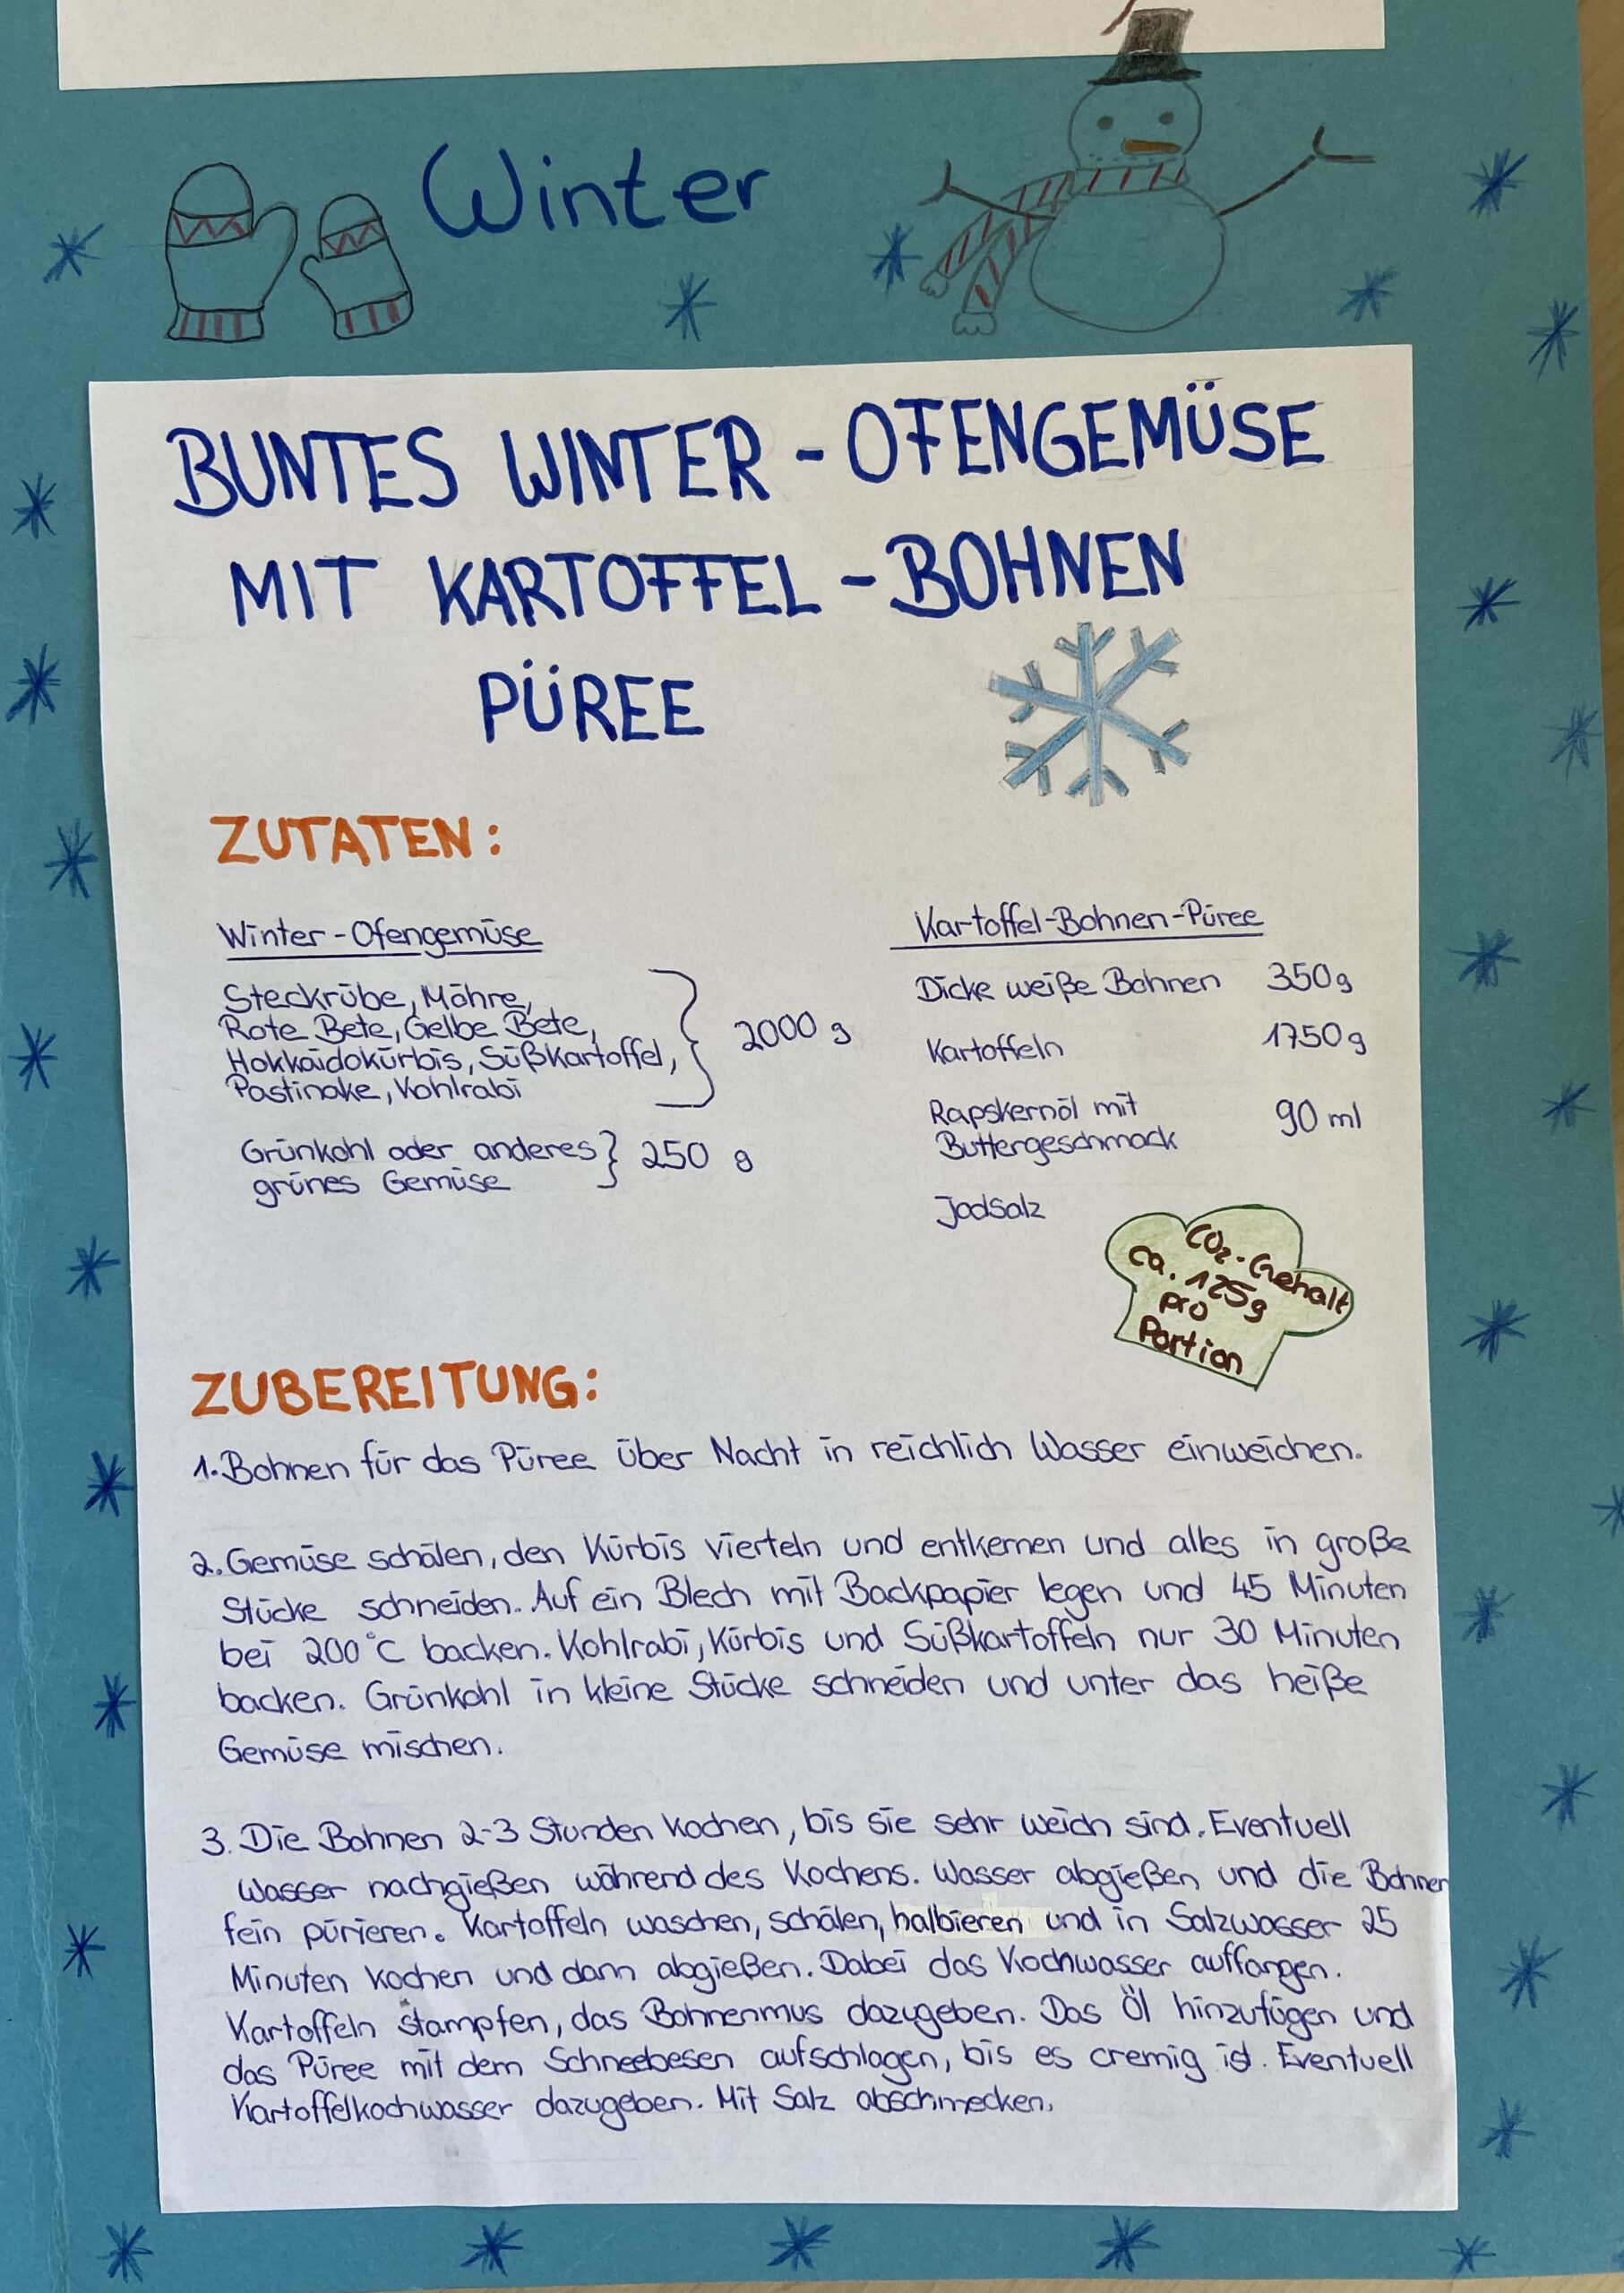 Winter
BUNTES WINTER-OFENGEMÜSE
MIT KARTOFFEL-BOHNEN
PÜREE
ZUTATEN:
Winter-Ofengemüse
Steckrübe, Möhre,
Rote Bete, Gelbe Bete,
Hokkaidokürbis, Süßkartoffel,
Pastinake, Kohlrabi
2000 g
Grünkohl oder anderes
grünes Gemüse
250 g
Kartoffel-Bohnen-Püree
Dicke weiße Bohnen 350g
Kartoffeln 1750g
Rapskernöl mit
Buttergeschmack
90 ml
Jodsalz
CO₂-Gehalt
ca. 125g
pro
Portion
ZUBEREITUNG:
1. Bohnen für das Püree über Nacht in reichlich Wasser einweichen.
2. Gemüse schälen, den Kürbis vierteln und entkernen und alles in große
Stücke schneiden. Auf ein Blech mit Backpapier legen und 45 Minuten
bei 200°C backen. Kohlrabi, Kürbis und Süßkartoffeln nur 30 Minuten
backen. Grünkohl in kleine Stücke schneiden und unter das heiße
Gemüse mischen.
3. Die Bohnen 2-3 Stunden kochen, bis sie sehr weich sind. Eventuell
Wasser nachgießen während des Kochens. Wasser abgießen und die Bohnen
fein pürieren. Kartoffeln waschen, schälen, halbieren und in Salzwasser 25
Minuten kochen und dann abgießen. Dabei das Kochwasser auffangen.
Kartoffeln stampfen, das Bohnenmus dazugeben. Das Öl hinzufügen und
das Püree mit dem Schneebesen aufschlagen, bis es cremig ist. Eventuell
Kartoffelkochwasser dazugeben. Mit Salz abschmecken.